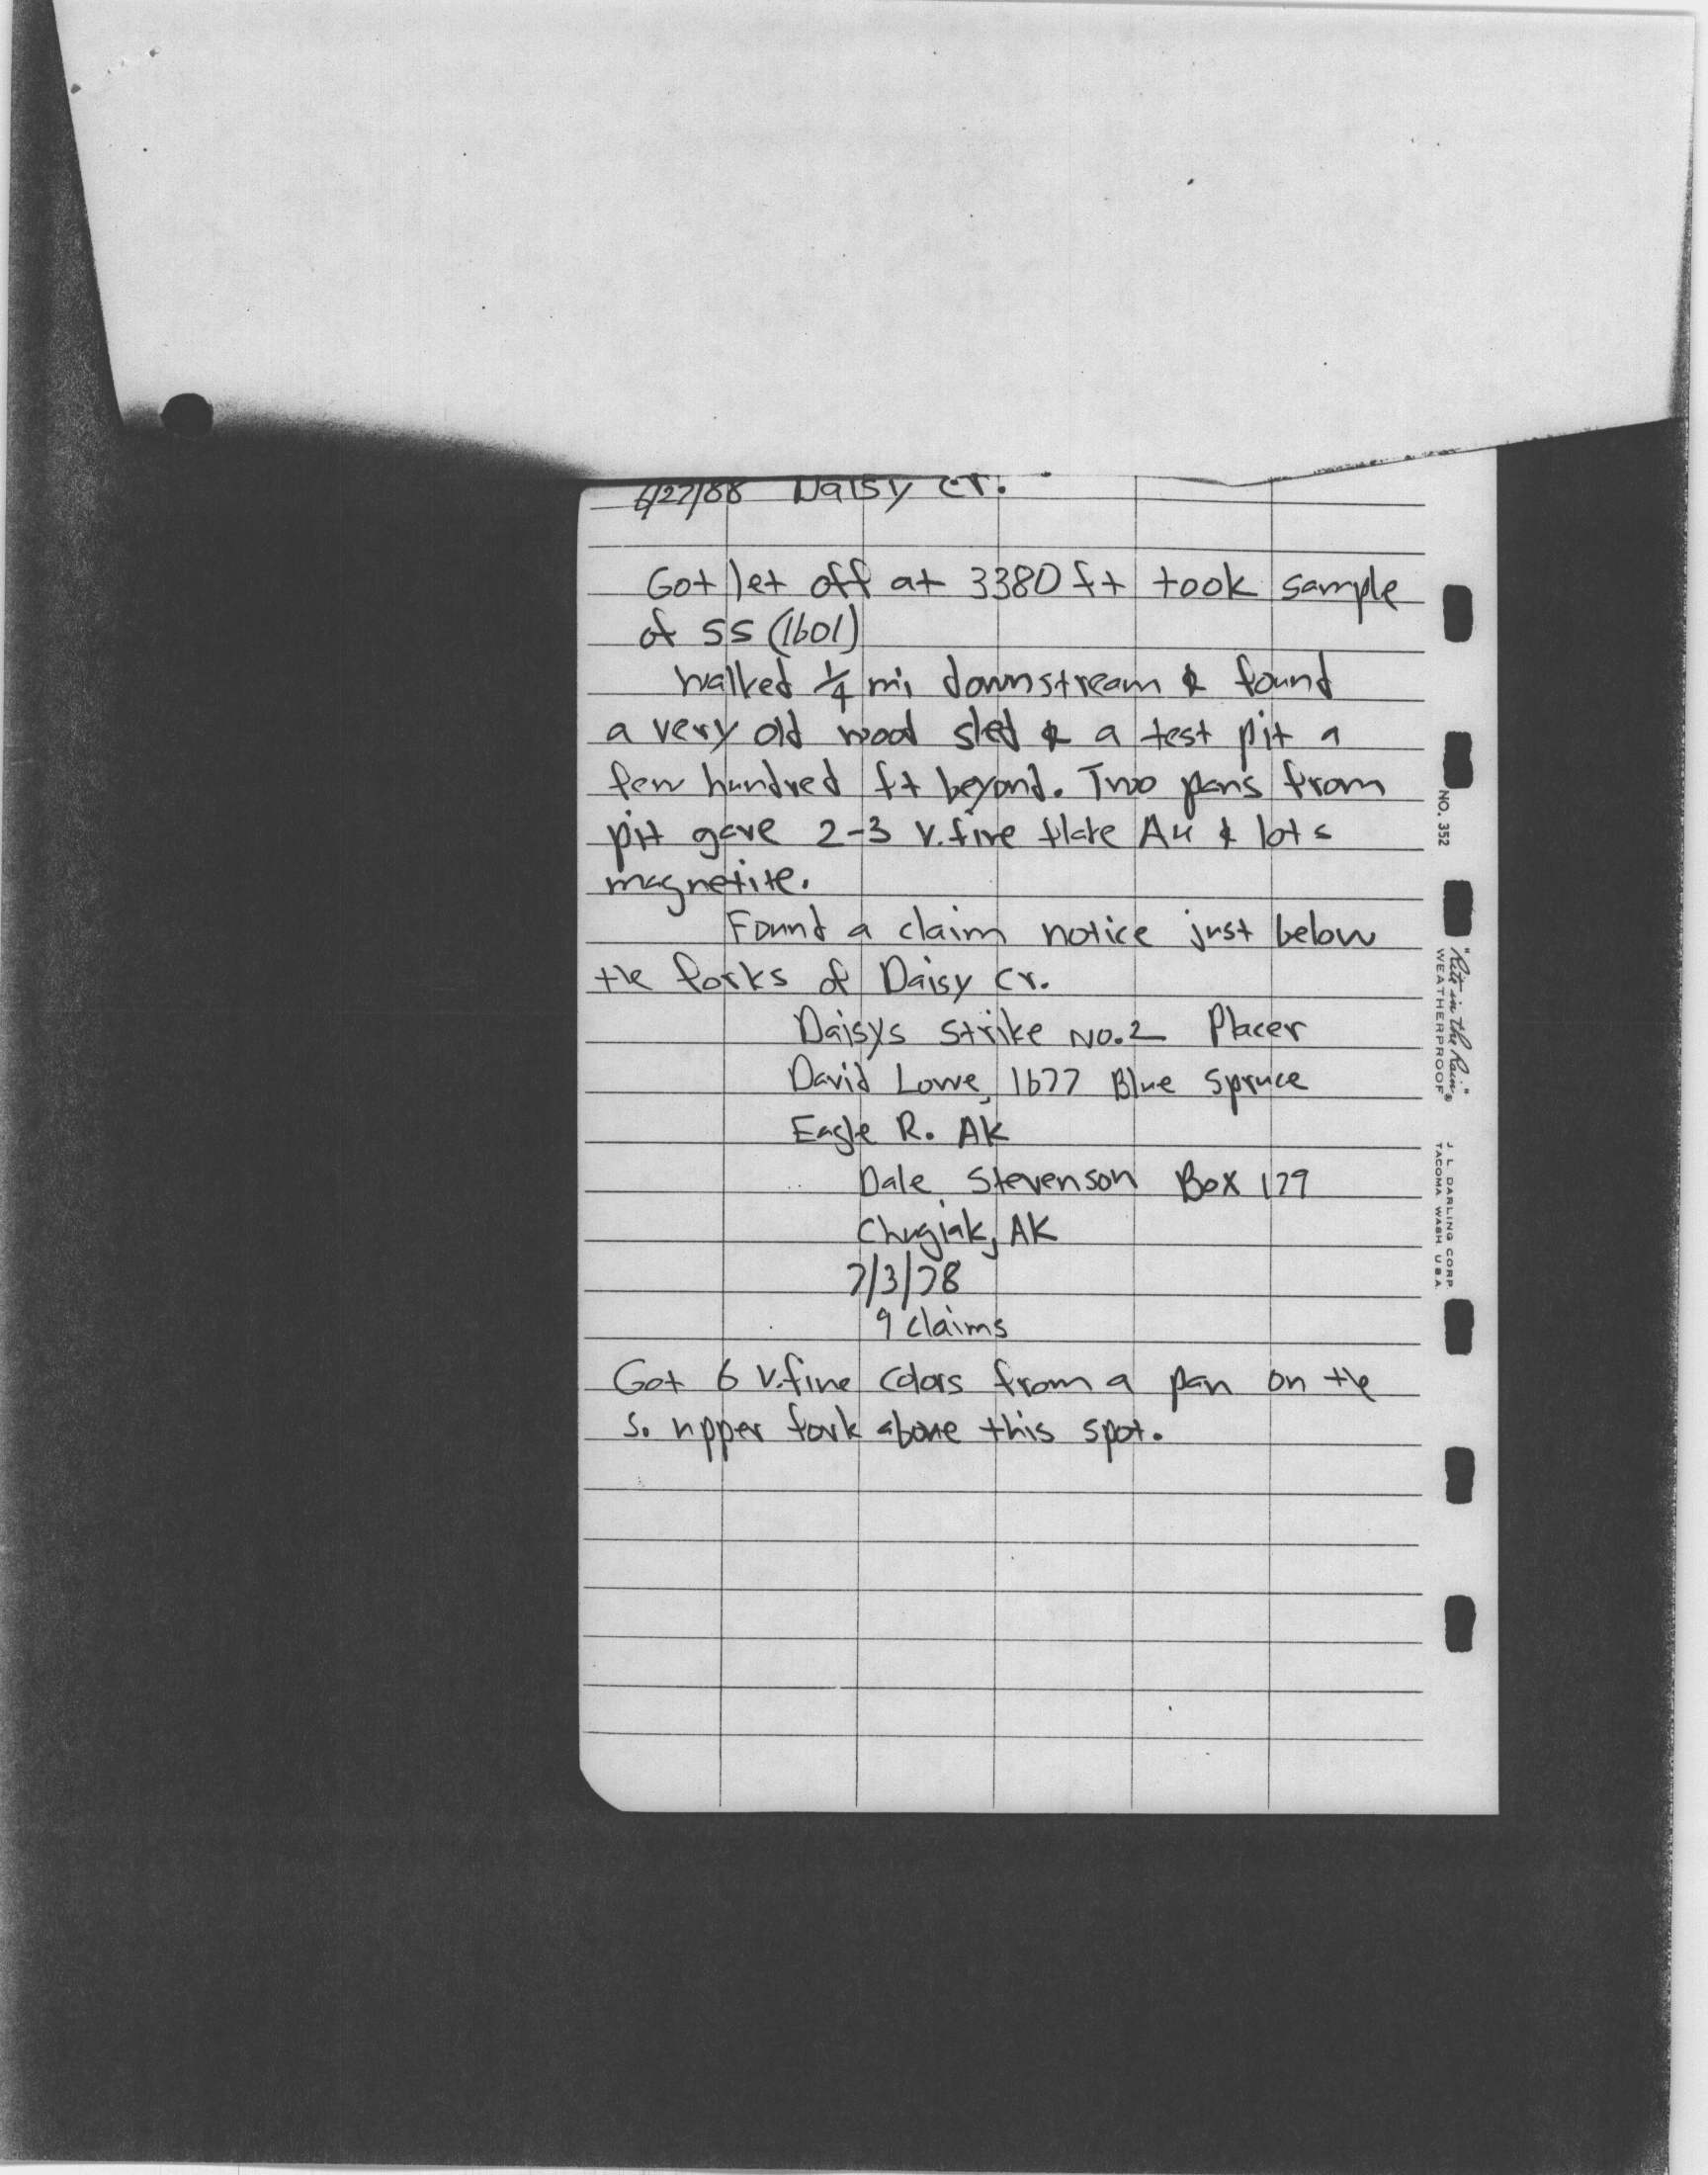 6/27/88 Daisy Cr.
Got let off at 3380 ft took sample
of SS (1601)
Walked 1/4 mi downstream & found
a very old wood sled & a test pit a
few hundred ft beyond. Two pans from
pit gave 2-3 v.fine flake Au & lots
magnetite.
Found a claim notice just below
the forks of Daisy Cr.
Daisys Strike No.2 Placer
David Lowe, 1677 Blue Spruce
Eagle R. AK
Dale Stevenson Box 179
Chugiak, AK
7/3/78
9 claims
Got 6 v.fine colors from a pan on the
S. upper fork above this spot.
NO. 352
"Rite in the Rain"®
WEATHERPROOF
J. L. DARLING CORP.
TACOMA WASH. U.S.A.